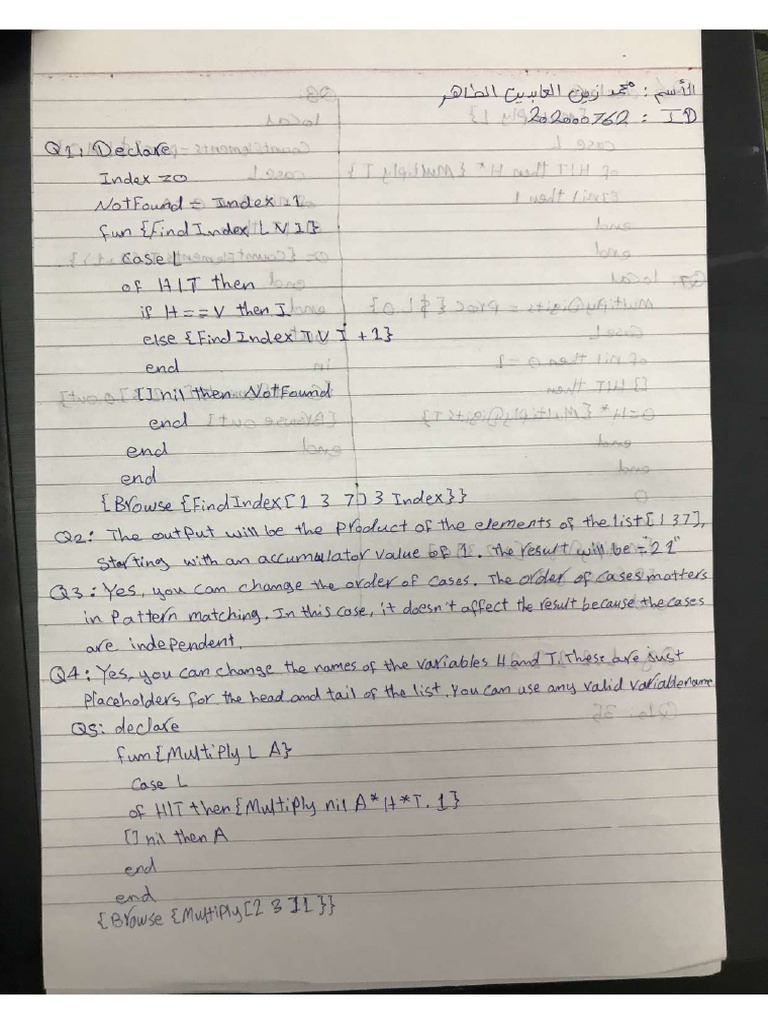 الأسم : محمد زين العابدين الطاهر
ID : 202000762
Q1: Declare
Index = 0
NotFound = Index - 1
fun {FindIndex L V I}
case L
of H|T then
if H == V then I
else {FindIndex T V I + 1}
end
[] nil then NotFound
end
end
end
{Browse {FindIndex [1 3 7] 3 Index}}
Q2: The output will be the product of the elements of the list [1 3 7],
starting with an accumulator value of 1. the result will be = "21"
Q3: Yes, you can change the order of cases. The order of cases matters
in pattern matching. In this case, it doesn't affect the result because the cases
are independent.
Q4: Yes, you can change the names of the variables H and T. These are just
placeholders for the head and tail of the list. You can use any valid variable name
Q5: declare
fun {Multiply L A}
Case L
of H|T then {Multiply nil A*H*T.1}
[] nil then A
end
end
{Browse {Multiply [2 3] 1}}